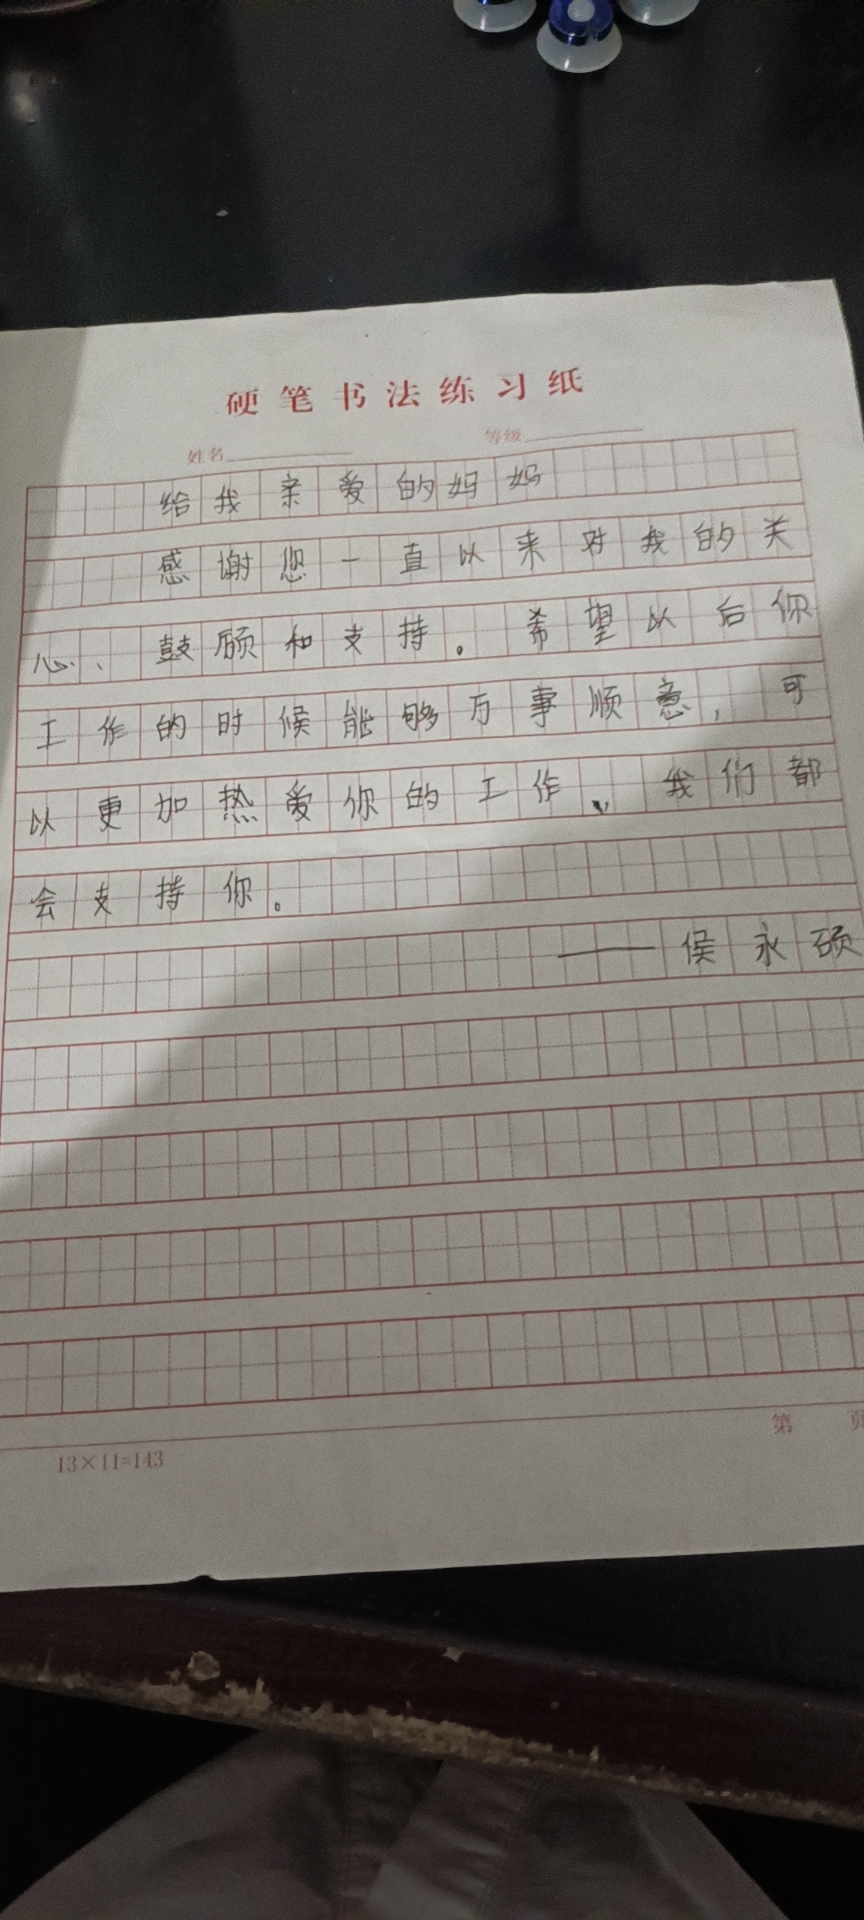 硬笔书法练习纸
姓名 等级
给我亲爱的妈妈
感谢您一直以来对我的关
心、鼓励和支持。希望以后你
工作的时候能够万事顺意，可
以更加热爱你的工作、我们都
会支持你。
——侯永硕
第 页
13×11=143